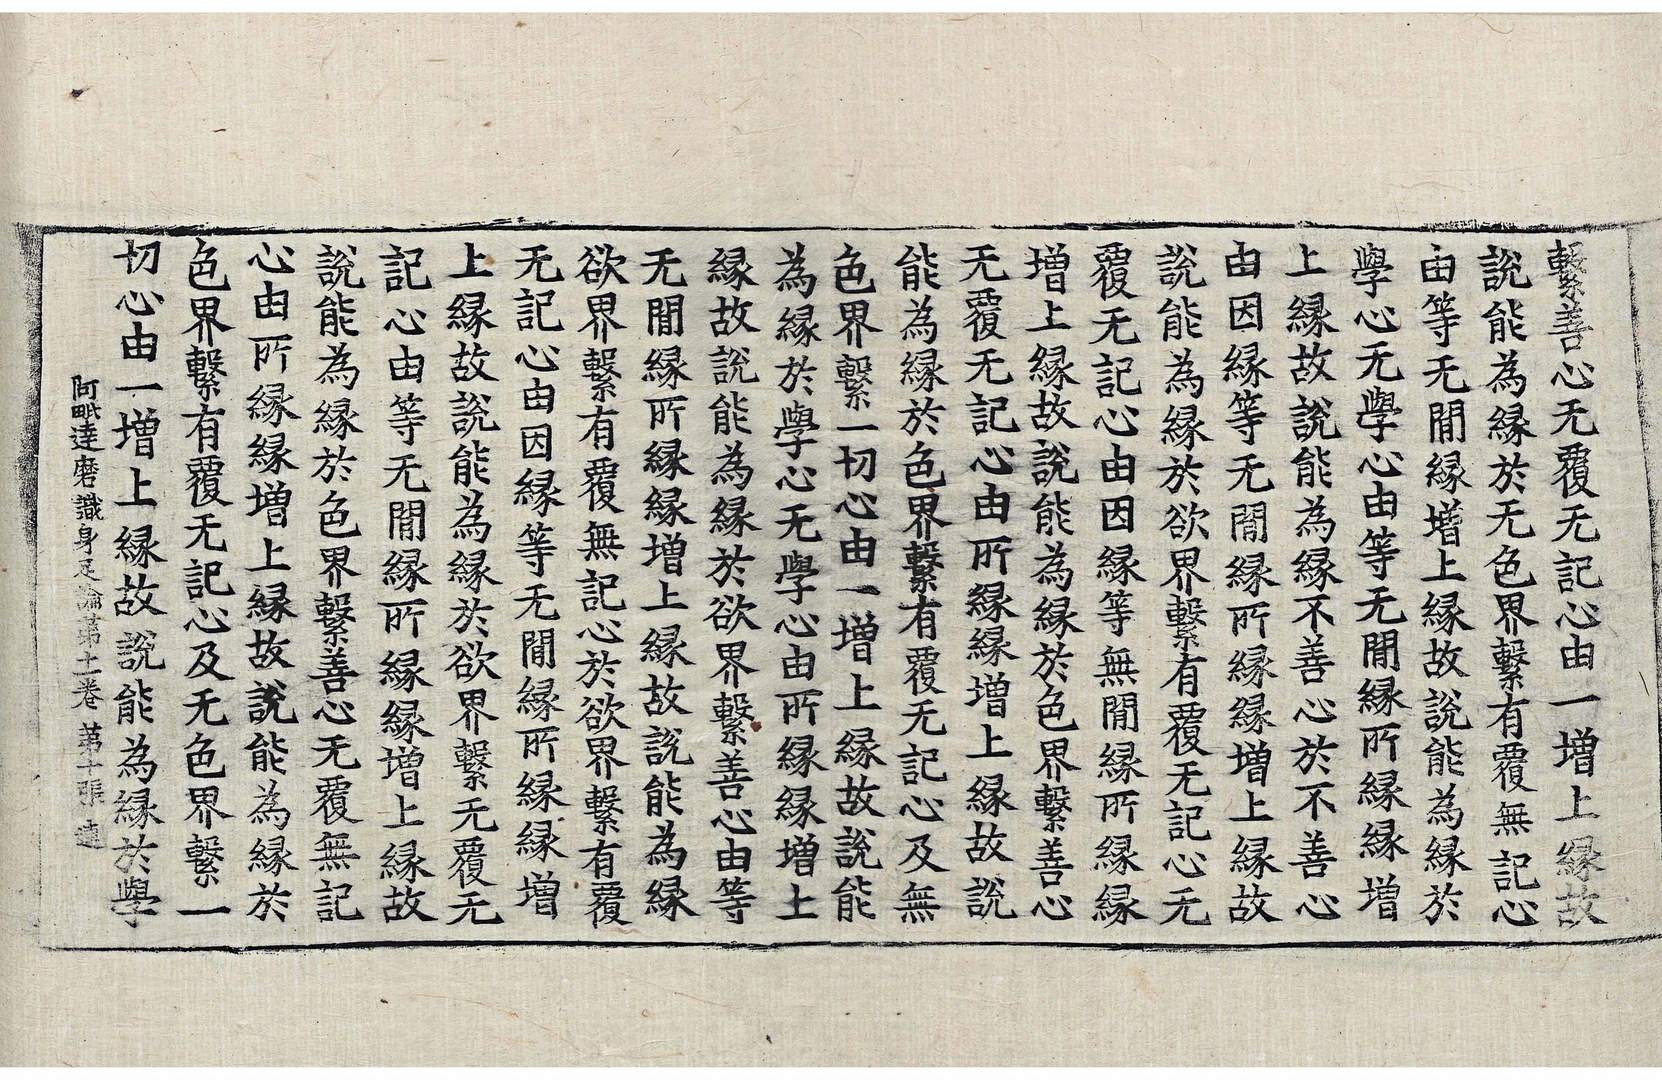 繫善心无覆无記心由一增上縁故
說能為縁於无色界繫有覆無記心
由等无閒縁增上縁故說能為縁於
學心无學心由等无閒縁所縁縁增
上縁故說能為縁不善心於不善心
由因縁等无閒縁所縁縁增上縁故
說能為縁於欲界繫有覆无記心无
覆无記心由因縁等無閒縁所縁縁
增上縁故說能為縁於色界繫善心
无覆无記心由所縁縁增上縁故說
能為縁於色界繫有覆无記心及無
色界繫一切心由一增上縁故說能
為縁於學心无學心由所縁縁增上
縁故說能為縁於欲界繫善心由等
无閒縁所縁縁增上縁故說能為縁
欲界繫有覆無記心於欲界繫有覆
无記心由因縁等无閒縁所縁縁增
上縁故說能為縁於欲界繫无覆无
記心由等无閒縁所縁縁增上縁故
說能為縁於色界繫善心无覆無記
心由所縁縁增上縁故說能為縁於
色界繫有覆无記心及无色界繫一
切心由一增上縁故說能為縁於學
阿毗達磨識身足論第十一卷 第十張